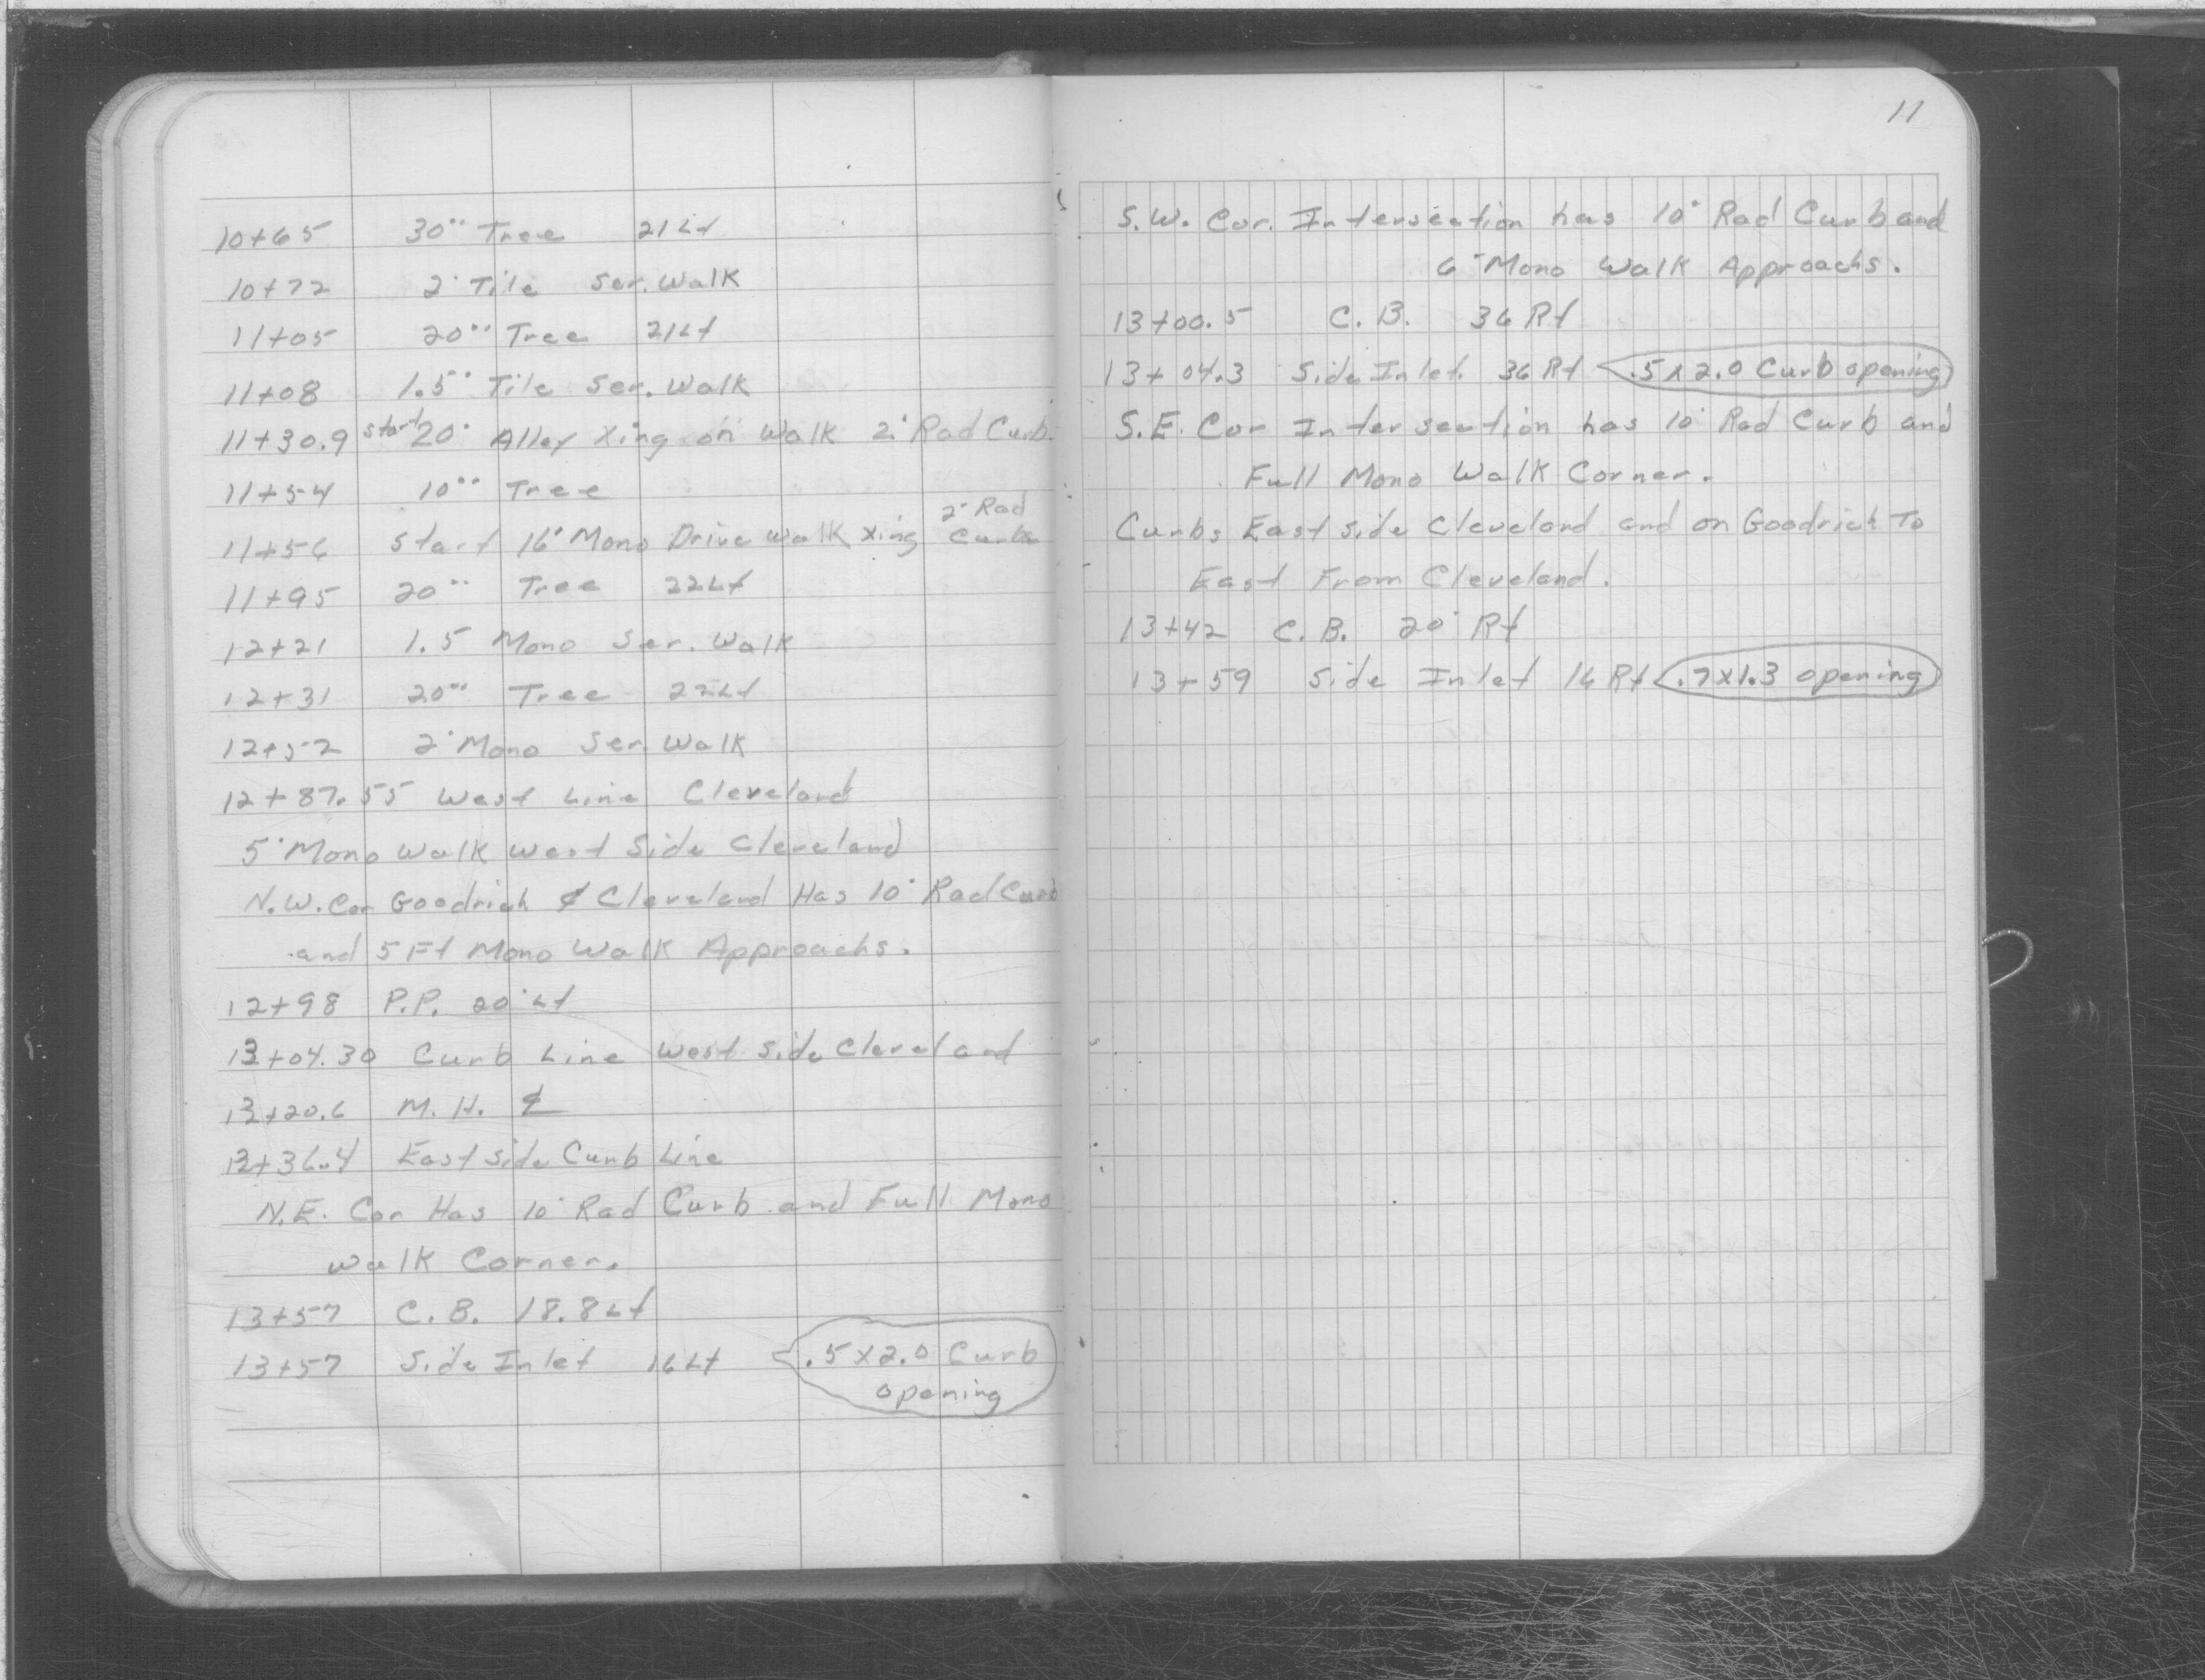 10+65 30" Tree 21Lt
10+72 2' Tile Ser. Walk
11+05 20" Tree 21Lt
11+08 1.5' Tile Ser. Walk
11+30.9 start 20' Alley Xing on Walk 2' Rad Curb.
11+54 10" Tree
11+56 start 16' Mono Drive Walk Xing 2' Rad Curb
11+95 20" Tree 22Lt
12+21 1.5 Mono Ser. Walk
12+31 20" Tree 22Lt
12+52 2' Mono Ser. Walk
12+87.55 West Line Cleveland
5' Mono Walk West Side Cleveland
N.W. Cor Goodrich & Cleveland Has 10' Rad Curb
and 5 Ft Mono Walk Approachs.
12+98 P.P. 20' Lt
13+04.30 Curb Line West Side Cleveland
13+20.6 M. H. ¢
13+36.4 East side Curb Line
N.E. Cor Has 10' Rad Curb and Full Mono
Walk Corner.
13+57 C. B. 18.8Lt
13+57 Side Inlet 16Lt .5x2.0 Curb
opening
11
S.W. Cor. Intersection has 10' Rad Curb and
6' Mono Walk Approachs.
13+00.5 C. B. 36 Rt
13+04.3 Side Inlet. 36 Rt .5x2.0 Curb opening
S.E. Cor Intersection has 10' Rad Curb and
Full Mono Walk Corner.
Curbs East side Cleveland and on Goodrich To
East From Cleveland.
13+42 C. B. 20' Rt
13+59 Side Inlet 16 Rt .7x1.3 opening